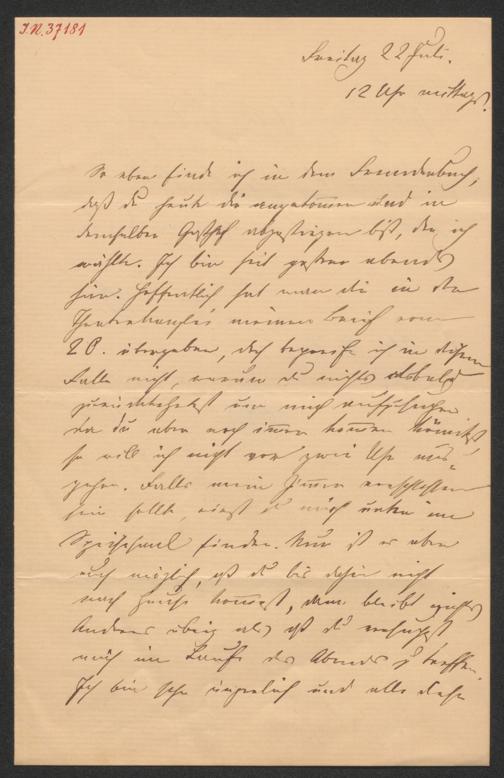 I.N. 37181
Freitag 22 Juli.
12 Uhr mittags.
So eben finde ich in dem Fremdenbuch,
daß du heute hie angekommen und in
demselben Gasthof abgestiegen bist, den ich
wählte. Ich bin seit gestern abends
hier. Hoffentlich hat man dir in der
Theaterkanzlei meinen Brief vom
20. übergeben, doch begreife ich in diesem
Falle nicht, warum du nicht alsbald
zurückkehrst um mich aufzusuchen
da du aber noch immer kommen könntest
so will ich nicht vor zwei Uhr aus-
gehen. Falls mein Zimmer verschlossen
sein sollte, wirst du mich unten im
Speisesaal finden. Nun ist es aber
auch möglich, daß du bis dahin nicht
nach Hause kommst, dann bleibt nichts
Anderes übrig als daß du versuchst
mich im Laufe des Abends zu treffen.
Ich bin sehr ärgerlich und alle diese